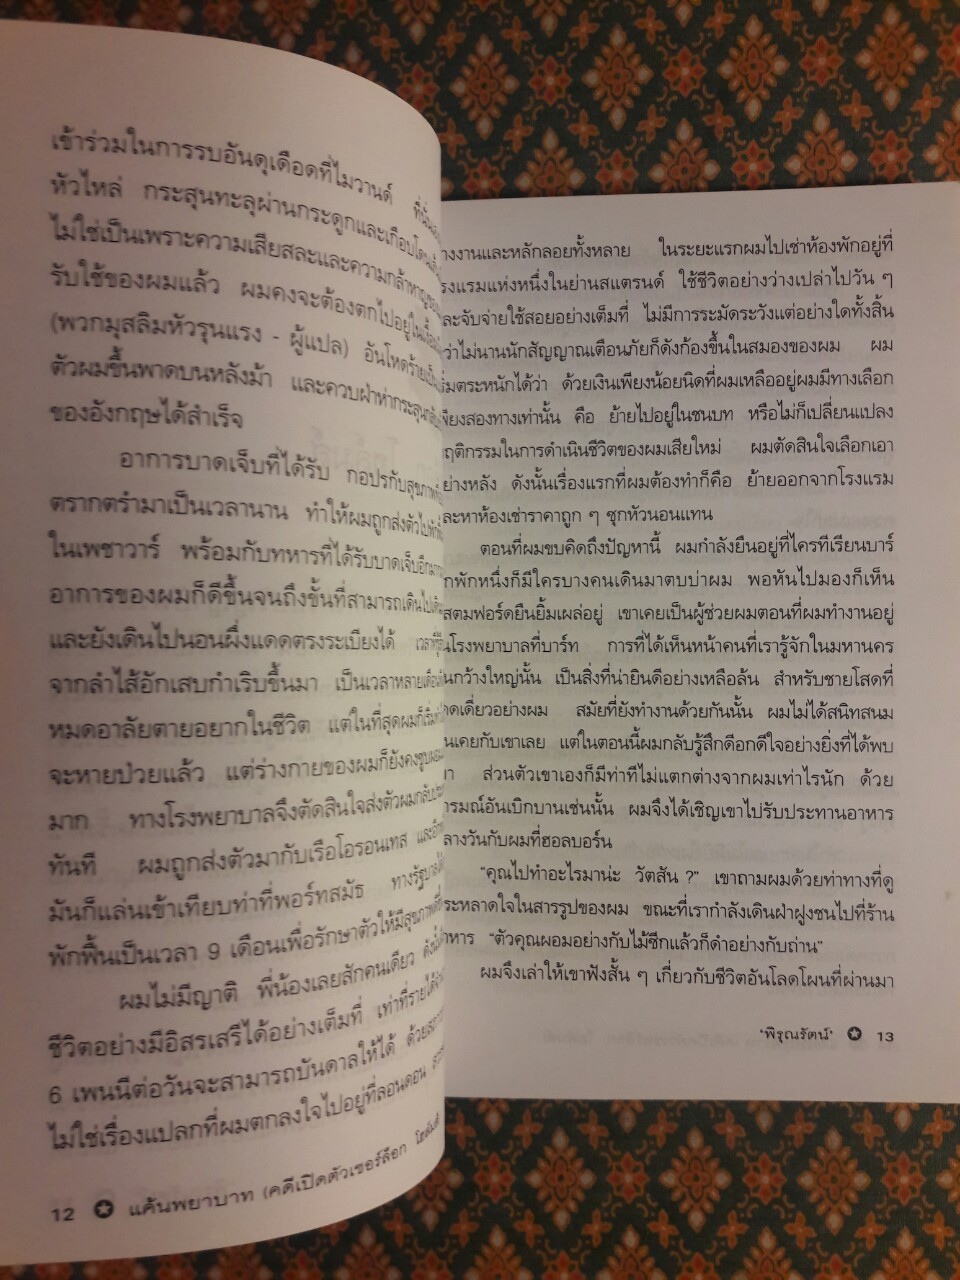 เข้าร่วมในการรบอันดุเดือดที่ไมวานด์ ที่นั่น
หัวไหล่ กระสุนทะลุผ่านกระดูกและเกือบโดน
ไม่ใช่เป็นเพราะความเสียสละและความกล้าหาญของ
รับใช้ของผมแล้ว ผมคงจะต้องตกไปอยู่ใน
(พวกมุสลิมหัวรุนแรง - ผู้แปล) อันโหดร้าย
ตัวผมขึ้นพาดบนหลังม้า และควบฝ่าห่ากระสุน
ของอังกฤษได้สำเร็จ
อาการบาดเจ็บที่ได้รับ กอปรกับสุขภาพ
ตรากตรำมาเป็นเวลานาน ทำให้ผมถูกส่งตัวไป
ในเพชาวาร์ พร้อมกับทหารที่ได้รับบาดเจ็บอีก
อาการของผมก็ดีขึ้นจนถึงขั้นที่สามารถเดินไป
และยังเดินไปนอนผึ่งแดดตรงระเบียงได้
จากลำไส้อักเสบกำเริบขึ้นมา เป็นเวลาหลายเดือน
หมดอาลัยตายอยากในชีวิต แต่ในที่สุดผมก็เริ่ม
จะหายป่วยแล้ว แต่ร่างกายของผมก็ยังคงซูบผอม
มาก ทางโรงพยาบาลจึงตัดสินใจส่งตัวผมกลับ
ทันที ผมถูกส่งตัวมากับเรือโอรอนเทส และ
มันก็แล่นเข้าเทียบท่าที่พอร์ทสมัธ ทางรัฐบาล
พักฟื้นเป็นเวลา 9 เดือนเพื่อรักษาตัวให้มีสุขภาพ
ผมไม่มีญาติ พี่น้องเลยสักคนเดียว ดังนั้น
ชีวิตอย่างมีอิสรเสรีได้อย่างเต็มที่ เท่าที่รายได้
6 เพนนีต่อวันจะสามารถบันดาลให้ได้ ด้วย
ไม่ใช่เรื่องแปลกที่ผมตกลงใจไปอยู่ที่ลอนดอน
12 ✪ แค้นพยาบาท (คดีเปิดตัวเชอร์ล็อก โฮล์มส์)
างงานและหลักลอยทั้งหลาย ในระยะแรกผมไปเช่าห้องพักอยู่ที่
รงแรมแห่งหนึ่งในย่านสแตรนด์ ใช้ชีวิตอย่างว่างเปล่าไปวัน ๆ
ละจับจ่ายใช้สอยอย่างเต็มที่ ไม่มีการระมัดระวังแต่อย่างใดทั้งสิ้น
ว่าไม่นานนักสัญญาณเตือนภัยก็ดังก้องขึ้นในสมองของผม ผม
ริ่มตระหนักได้ว่า ด้วยเงินเพียงน้อยนิดที่ผมเหลืออยู่ผมมีทางเลือก
พียงสองทางเท่านั้น คือ ย้ายไปอยู่ในชนบท หรือไม่ก็เปลี่ยนแปลง
ฤติกรรมในการดำเนินชีวิตของผมเสียใหม่ ผมตัดสินใจเลือกเอา
ย่างหลัง ดังนั้นเรื่องแรกที่ผมต้องทำก็คือ ย้ายออกจากโรงแรม
ละหาห้องเช่าราคาถูก ๆ ซุกหัวนอนแทน
ตอนที่ผมขบคิดถึงปัญหานี้ ผมกำลังยืนอยู่ที่ไครทีเรียนบาร์
กพักหนึ่งก็มีใครบางคนเดินมาตบบ่าผม พอหันไปมองก็เห็น
สตมฟอร์ดยืนยิ้มเผล่อยู่ เขาเคยเป็นผู้ช่วยผมตอนที่ผมทำงานอยู่
นโรงพยาบาลที่บาร์ท การที่ได้เห็นหน้าคนที่เรารู้จักในมหานคร
นกว้างใหญ่นั้น เป็นสิ่งที่น่ายินดีอย่างเหลือล้น สำหรับชายโสดที่
ดดเดี่ยวอย่างผม สมัยที่ยังทำงานด้วยกันนั้น ผมไม่ได้สนิทสนม
นเคยกับเขาเลย แต่ในตอนนี้ผมกลับรู้สึกดีอกดีใจอย่างยิ่งที่ได้พบ
ขา ส่วนตัวเขาเองก็มีท่าทีไม่แตกต่างจากผมเท่าไรนัก ด้วย
ารมณ์อันเบิกบานเช่นนั้น ผมจึงได้เชิญเขาไปรับประทานอาหาร
ลางวันกับผมที่ฮอลบอร์น
“คุณไปทำอะไรมาน่ะ วัตสัน ?” เขาถามผมด้วยท่าทางที่ดู
ระหลาดใจในสารรูปของผม ขณะที่เรากำลังเดินฝ่าฝูงชนไปที่ร้าน
าหาร “ตัวคุณผอมอย่างกับไม้ซีกแล้วก็ดำอย่างกับถ่าน”
ผมจึงเล่าให้เขาฟังสั้น ๆ เกี่ยวกับชีวิตอันโลดโผนที่ผ่านมา
'พิรุณรัตน์' ✪ 13